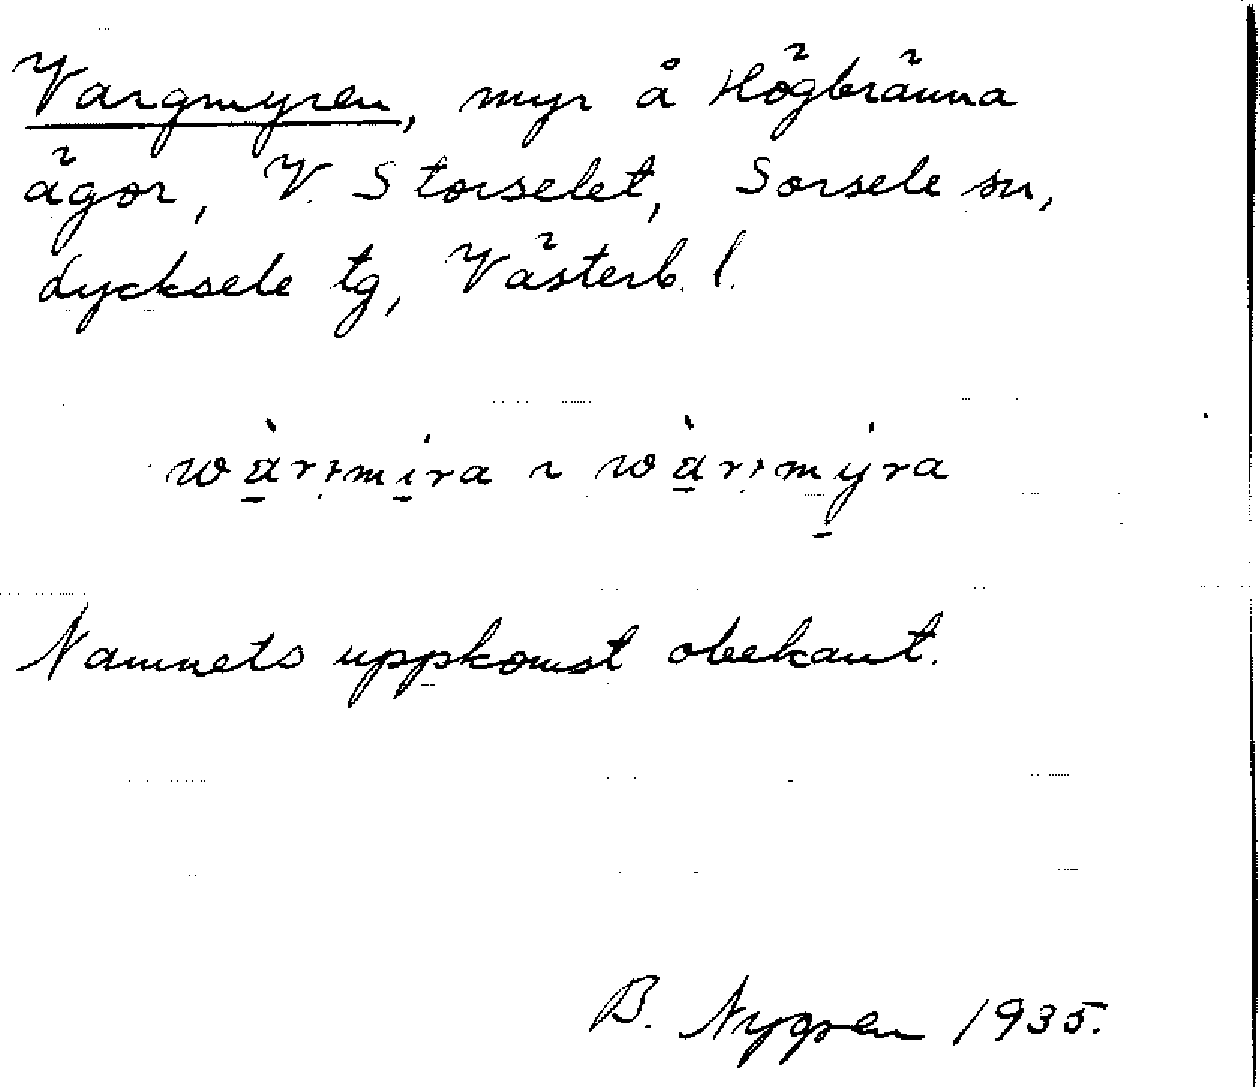 Vargmyren, myr å Högbränna
ägor, V. Storselet, Sorsele sn,
Lycksele tg, Västerb. l.
Namnets uppkomst obekant.
B. Nygren 1935.